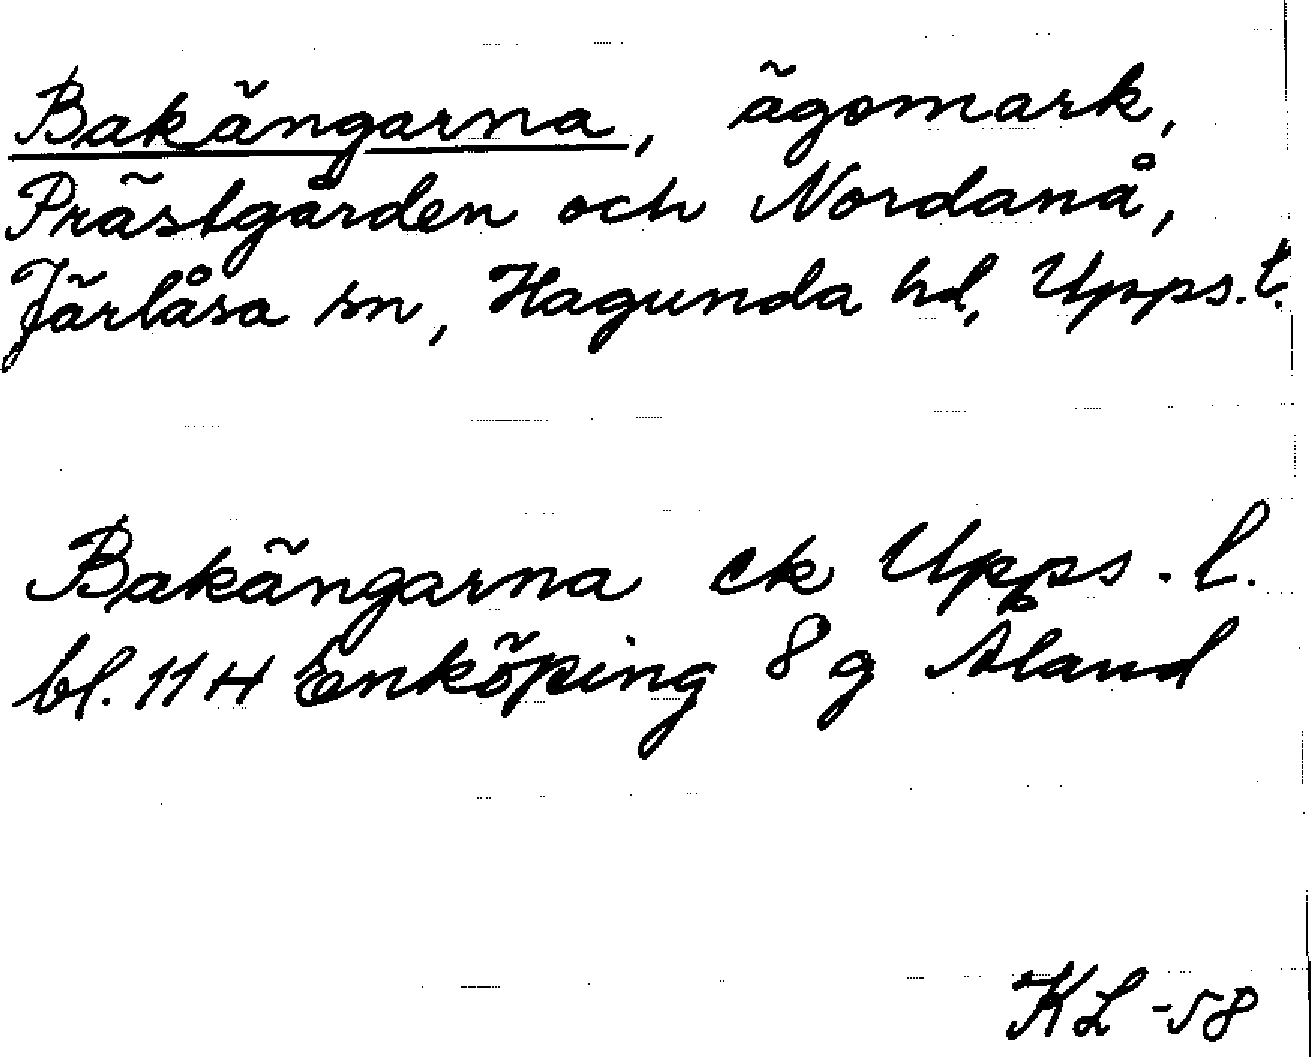 Bakängarna, ägomark,
Prästgården och Nordanå,
Järlåsa sn, Hagunda hd, Upps. l.
Bakängarna ek Upps. l.
bl. 11 H Enköping 8 g Åland
KL -58